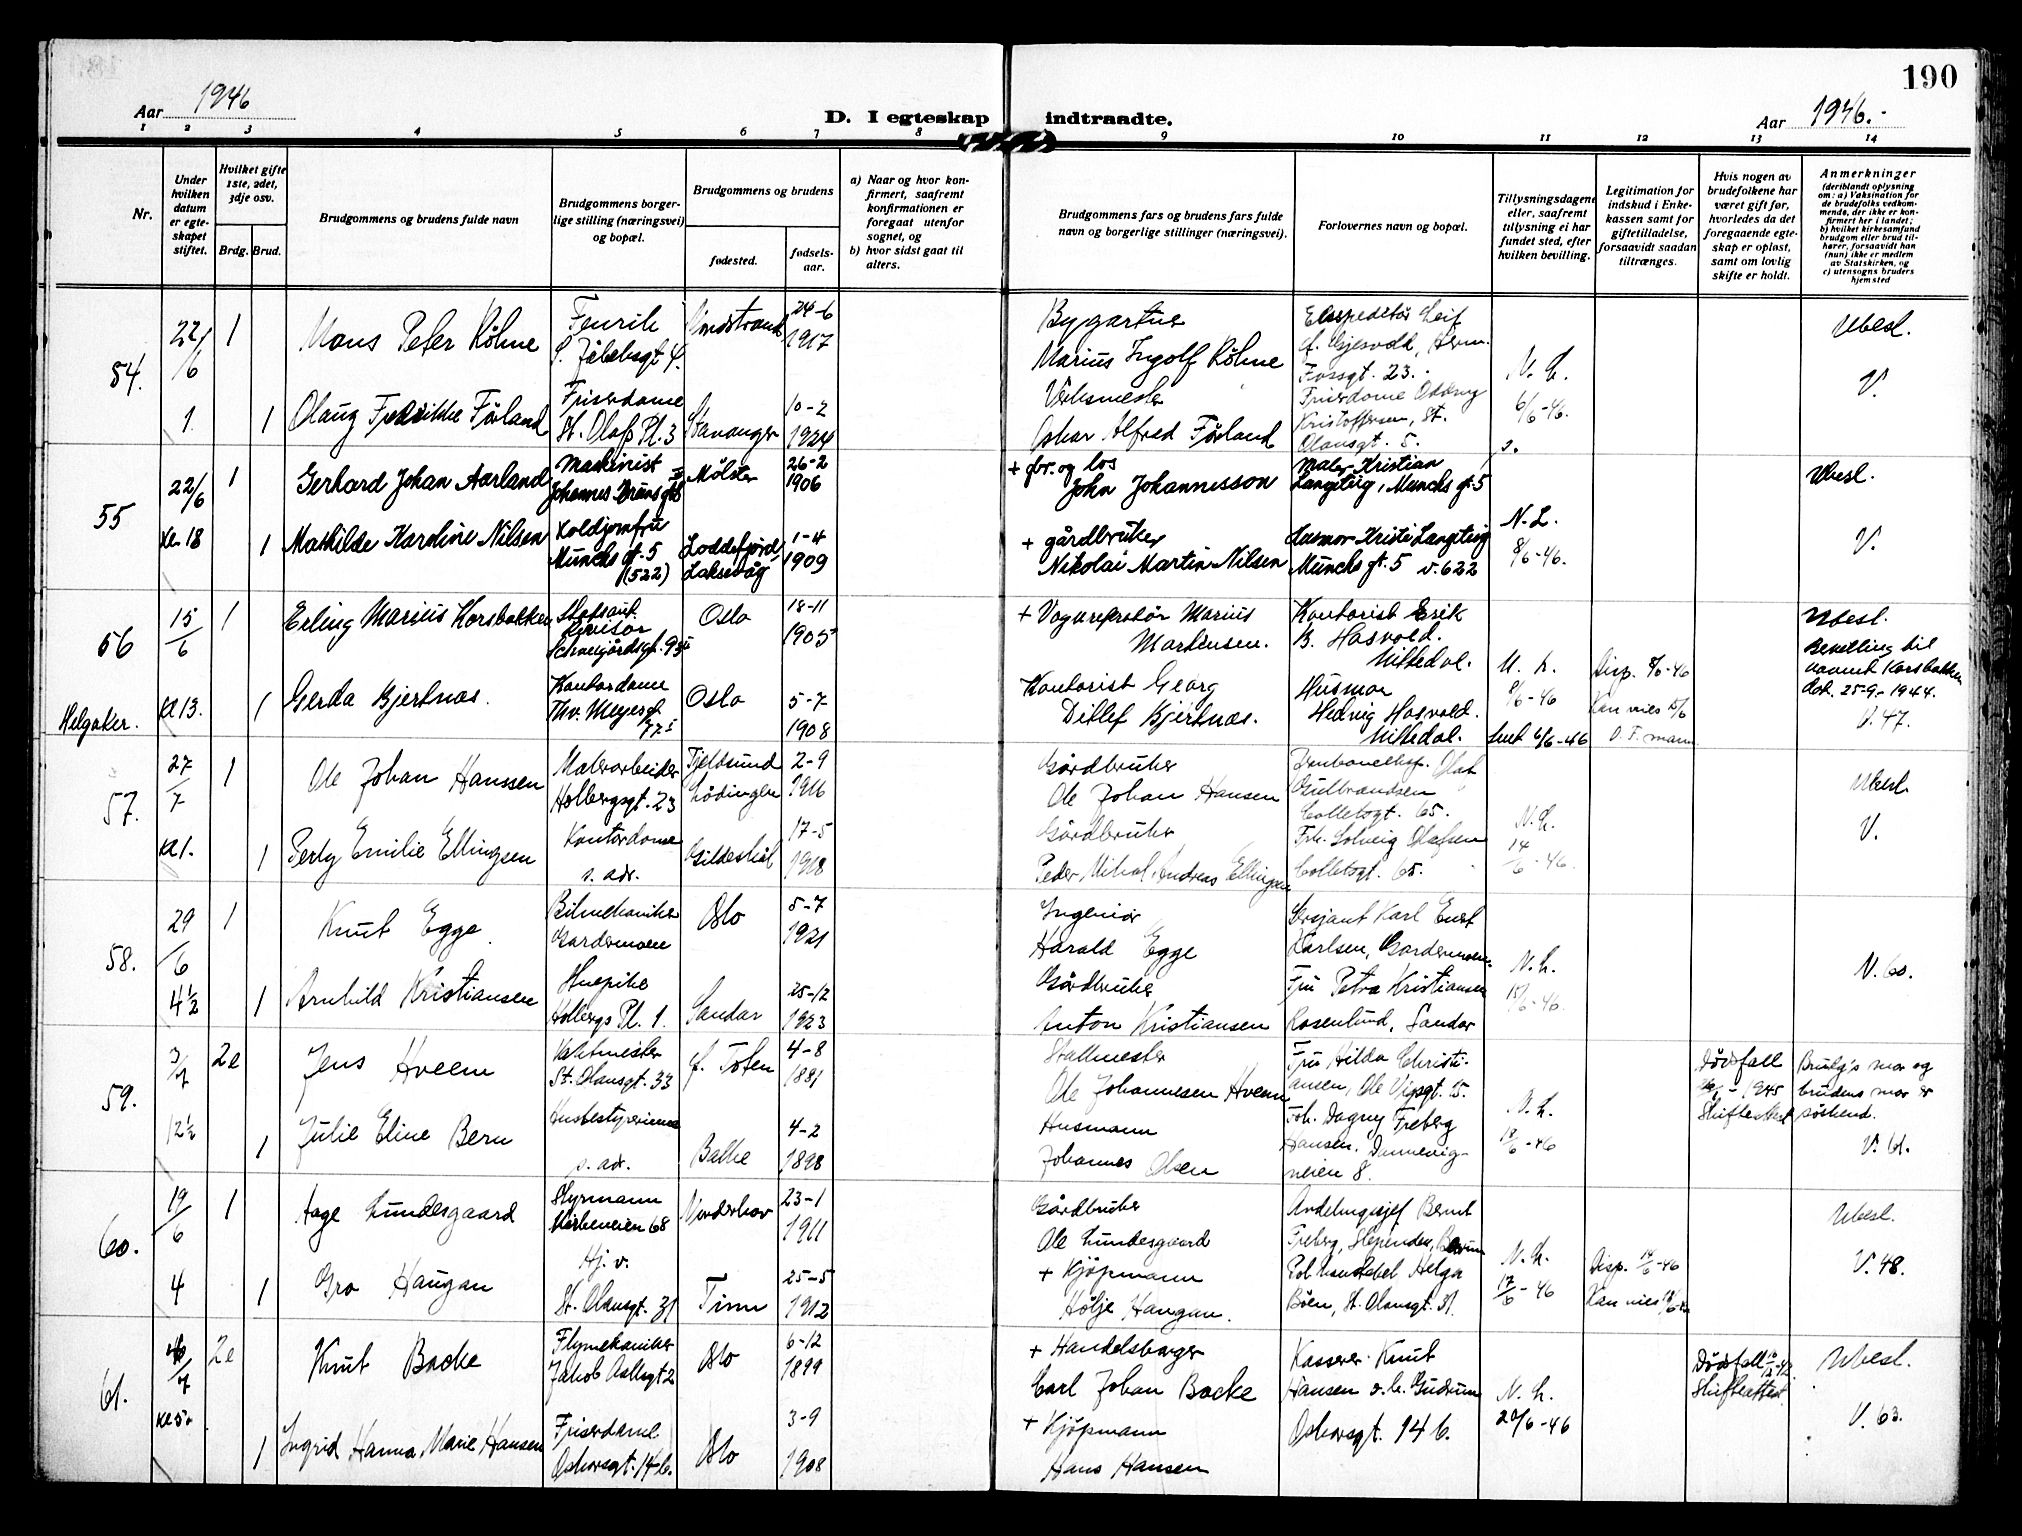 190
Aar 1946
D. I egteskap indtraadte.
Aar 1946.-
1 2 3 4 5 6 7 8 9 10 11 12 13 14
Nr.
Under hvilken datum er egteskapet stiftet.
Hvilket gifte 1ste, 2det, 3dje osv.
Brdg. Brud.
Brudgommens og brudens fulde navn
Brudgommens borgerlige stilling (næringsvei) og bopæl.
Brudgommens og brudens
fødested. fødselsaar.
a) Naar og hvor konfirmert, saafremt konfirmationen er foregaat utenfor sognet, og
b) hvor sidst gaat til alters.
Brudgommens fars og brudens fars fulde navn og borgerlige stillinger (næringsvei).
Forlovernes navn og bopæl.
Tillysningsdagene eller, saafremt tillysning ei har fundet sted, efter hvilken bevilling.
Legitimation for indskud i Enkekassen samt for giftetilladelse, forsaavidt saadan tiltrænges.
Hvis nogen av brudefolkene har været gift før, hvorledes da det foregaaende egteskap er opløst, samt om lovlig skifte er holdt.
Anmerkninger
(deriblandt oplysning om: a) Vaksination for de brudefolks vedkommende, der ikke er konfirmert her i landet; b) hvilket kirkesamfund brudgom eller brud tilhører, forsaavidt han (hun) ikke er medlem av Statskirken, og c) utensogns bruders hjemsted
54.
22/6 1 Mons Peter Røhne Fenrik
24-6
1917
Bygartner
Marius Ingolf Røhne
Ekspeditør Leif
Fossgt. 23.
N. L.
6/6-46.
Ubesl.
V.
1. 1 Olaug Fredrikke Førland Friserdame
St. Olafs Pl. 3 Stavanger 10-2
1924
Verksmester
Oskar Alfred Førland
Friserdame
Kristoffersen, St.
Olavsgt. 5.
55
22/6 1 Gerhard Johan Aarland Maskinist
Molde 26-2
1906
+ for. og los
John Johannesson
Maler Kristian
Langteig, Munchs gt. 5
Ubesl.
Kl. 18 1 Mathilde Karoline Nilsen Koldjomfru
Munchs gt. 5
(522)
Loddefjord
Laksevåg 1-4
1909
+ gårdbruker
Nikolai Martin Nilsen
Husmor Kristi Langteig
Munchs gt. 5 v. 622
N. L.
8/6-46.
V.
56
15/6 1 Erling Marius Korsbakken Statsaut.
Revisor
Schweigårdsgt. 95
Oslo 18-11
1905
Marius
Martensen.
Kontorist Erik
B. Hasvold.
Nittedal.
Ubesl.
Bevilling til
navnet Korsbakken
dat. 25-9-1944.
V. 47.
Helgaker.
Kl 13. 1 Gerda Bjertnæs. Kontordame
Thv. Meyersgt.
77 I
Oslo 5-7
1908
Kontorist Georg
Ditlef Bjertnæs.
Husmor
Hedvig Hasvold.
Nittedal.
8/6-46
Disp. 8/6-46
Kan vies 15/6
57.
27/7 1 Ole Johan Hanssen Malerarbeider
Holbergsgt. 23
Tjeldsund
Lødingen 2-9
1916
Gårdbruker
Ole Johan Hansen
Olaf
Gulbrandsen
Colletsgt. 65.
Ubesl.
Kl 1. 1 Perly Emilie Ellingsen Kontordame
s. adr.
Gildeskål 17-5
1918
Gårdbruker
Peder Mikal Andreas Ellingsen
Frk. Solveig Olafsen
Colletsgt. 65.
N. L.
14/6-46.
V.
58.
29/6 1 Knut Egge Bilmekaniker
Gardermoen
Oslo 5-7
1921
Ingeniør
Harald Egge
Sersjant Karl Enet
Karlsen, Gardermoen.
4 1/2 1 Arnhild Kristiansen Huspike
Holbergs Pl. 1.
Sandar 25-12
1923
Gårdbruker
Anton Kristiansen
Fru Petra Kristiansen
Rosenlund, Sandar
N. L.
15/6-46.
V. 60.
59.
3/7 2e Jens Hveem Vaktmester
St. Olavsgt. 33
Ø. Toten 4-8
1881
Stallmester
Ole Johannesen Hveem
Fru Hilda Christiansen, Ole Vigsgt. 15.
Dødsfall
1945
Skifteattest
Brudg's mor og
brudens mor er
søskend.
12 1/2 1 Julie Eline Bern Husbestyrerinne
s. adr.
Balke 4-2
1898
Husmann
Johannes Olsen
Frk. Dagny Freberg
Hansen. Dannevigveien 8.
N. L.
18/6-46
V. 61.
60.
19/6 1 Aage Lundesgaard Styrmann
Kirkeveien 68
Norderhov 23-1
1911
Gårdbruker
Ole Lundesgaard
Avdelingssjef Bernt
Freberg, Slependen, Bærum
Ubesl.
4 1 Gro Haugan Hj. v.
St. Olavsgt. 31
Tinn 25-5
1912
+ Kjøpmann
Hølje Haugan.
Helga
Bøen, St. Olavsgt. 31.
N. L.
17/6-46
Disp. 14/6-46
Kan vies
V. 48.
61.
2e Knut Backe Flymekaniker
Jakob Aallsgt 2
Oslo 6-12
1899
+ Handelsborger
Carl Johan Backe
Kasserer Knut
Hansen o. h. Gudrun
Oskarsgt. 14 b.
Dødsfall
Skifteattest
Ubesl.
Kl 5. 1 Ingrid Hanna Marie Hansen Friserdame
Oskarsgt. 14 b.
Oslo 3-9
1908
+ Kjøpmann
Hans Hansen
N. L.
20/6-46
V. 63.